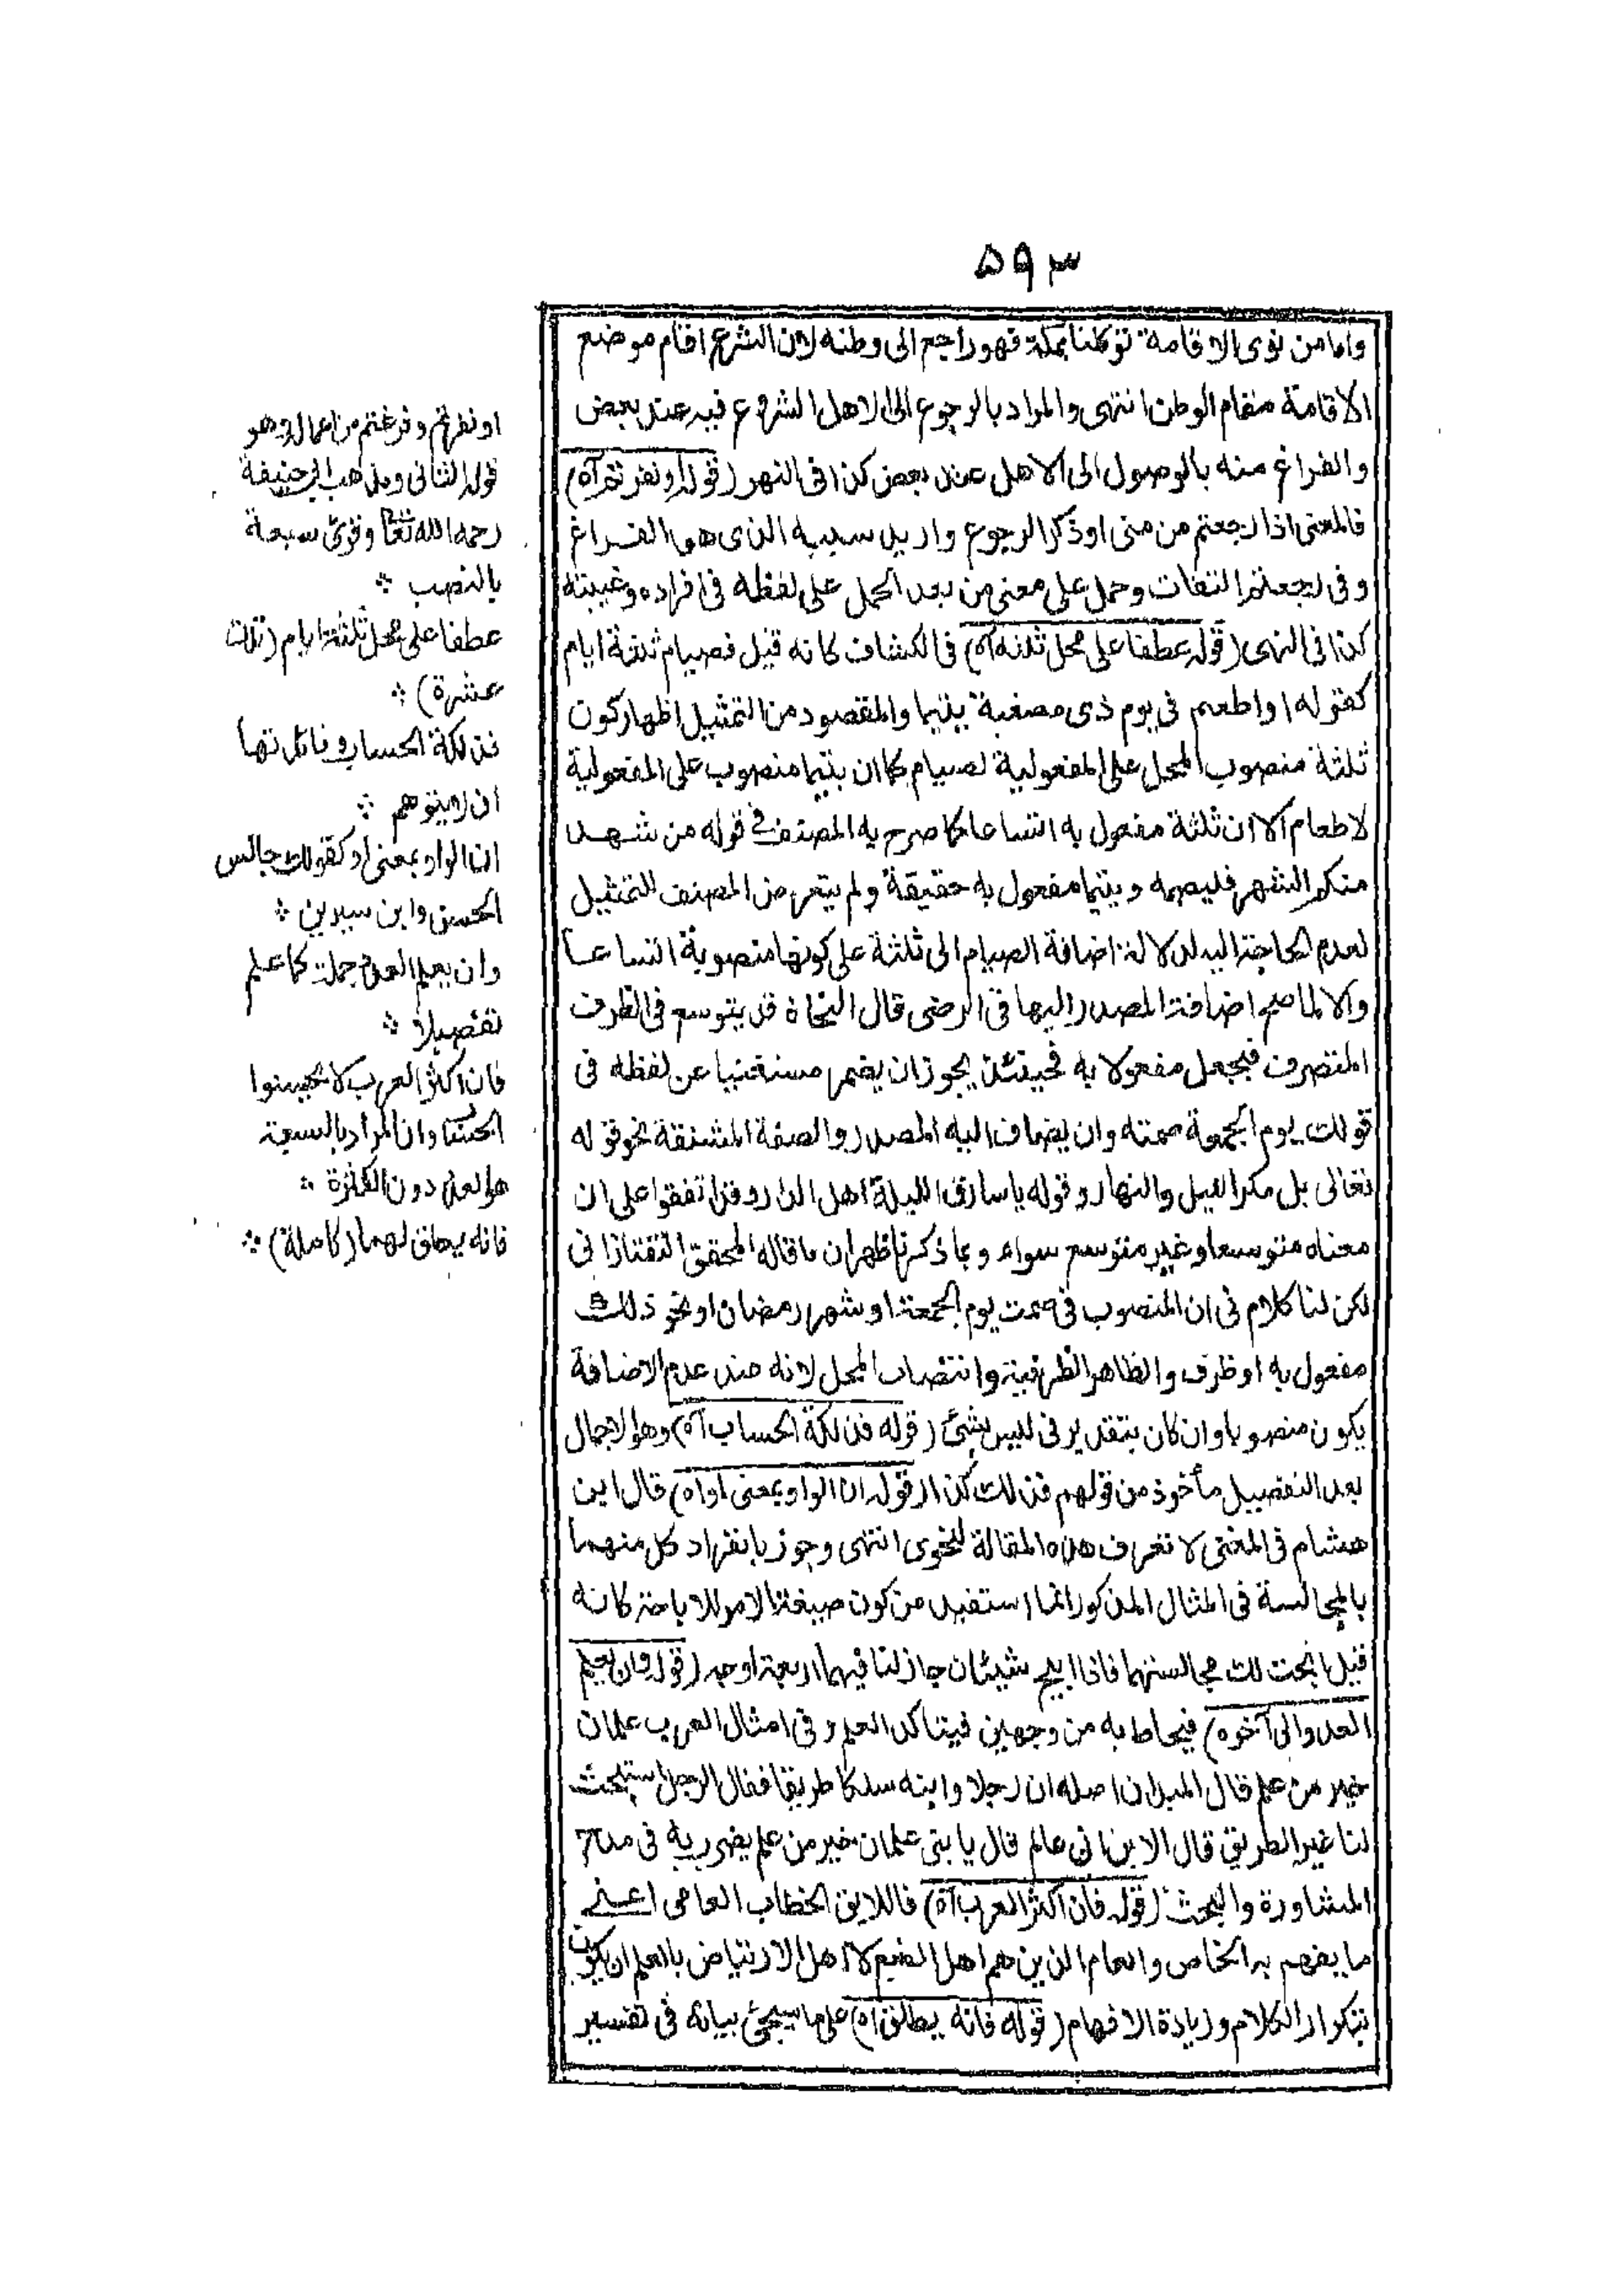 ۵۹۳
واما من نوى الاقامة توطنا بمكة فهو راجع الى وطنه لان الشرع اقام موضع
الاقامة مقام الوطن انتهى والمراد بالرجوع الى الاهل الشروع فيه عند بعض
والفراغ منه بالوصول الى الاهل عند بعض كذا فى النهر (قوله او نفرتم آه)
فالمعنى اذا رجعتم من منى او ذكر الرجوع واريد سببه الذى هو الفراغ
وفى رجعتم التفات وحمل على معنى من بعد الحمل على لفظه فى افراده وغيبته
كذا فى النهى (قوله عطفا على محل ثلثة آه) فى الكشاف كانه قيل فصيام ثلثة ايام
كقوله او اطعم فى يوم ذى مسغبة يتيما والمقصود من التمثيل اظهار كون
ثلثة منصوب المحل على المفعولية لصيام كما ان يتيما منصوب على المفعولية
لاطعام الا ان ثلثة مفعول به اتساعا كما صرح به المصنف فى قوله من شهد
منكم الشهر فليصمه ويتيما مفعول به حقيقة ولم يتعرض المصنف للتمثيل
لعدم الحاجة اليه لدلالة اضافة الصيام الى ثلثة على كونها منصوبة اتساعا
والا لما صح اضافة المصدر اليها فى الرضى قال النحاة قد يتوسع فى الظرف
المتصرف فيجعل مفعولا به فحينئذ يجوز ان يضمر مستغنيا عن لفظه فى
قولك يوم الجمعة صمته وان يضاف اليه المصدر والصفة المشتقة نحو قوله
تعالى بل مكر الليل والنهار وقوله يا سارق الليلة اهل الدار وقد اتفقوا على ان
معناه متوسعا وغير متوسع سواء وبما ذكرنا ظهر ان ما قاله المحقق التفتازانى
لكن لنا كلام فى ان المنصوب فى صمت يوم الجمعة او شهر رمضان او نحو ذلك
مفعول به او ظرف والظاهر الظرفية وانتصاب المحل لانه عند عدم الاضافة
يكون منصوبا وان كان بتقدير فى ليس بشئ (قوله فذلكة الحساب آه) وهو الاجمال
بعد التفصيل مأخوذ من قولهم فذلك كذا (قوله ان الواو بمعنى او آه) قال ابن
هشام فى المغنى لا تعرف هذه المقالة لنحوى انتهى وجوز بانفراد كل منهما
بالمجالسة فى المثال المذكور انما استفيد من كون صيغة الامر للاباحة كانه
قيل ابحت لك مجالستهما فاذا ابيح شيئان جاز لنا فيهما اربعة اوجه (قوله وان يعلم
العدد الى آخره) فيحاط به من وجهين فيتاكد العلم وفى امثال العرب علمان
خير من علم قال الميدانى اصله ان رجلا وابنه سلكا طريقا فقال الرجل استبحث
لنا عن الطريق قال الابن انى عالم قال يا بنى علمان خير من علم يضرب به فى مدح
المشاورة والبحث (قوله فان اكثر العرب آه) فاللايق الخطاب العامى اعنى
ما يفهم به الخاص والعام الذين هم اهل الطبع لا اهل الارتياض بالعلم ان يكون
بتكرار الكلام وزيادة الافهام (قوله فانه يطلق آه) على ما سيجئ بيانه فى تفسير
او نفرتم وفرغتم من اعماله وهو
قوله الثانى ومذهب ابى حنيفة
رحمه الله تعا وقرئ سبعة
بالنصب
عطفا على محل ثلثة ايام (تلك
عشرة)
فذلكة الحساب وفائدتها
ان لا يتوهم
ان الواو بمعنى او كقولك جالس
الحسن وابن سيرين
وان يعلم العدد جملة كما علم
تفصيلا
فان اكثر العرب لا يحسنوا
الحساب وان المراد بالسبعة
هو العدد دون الكثرة
فانه يطلق لهما (كاملة)